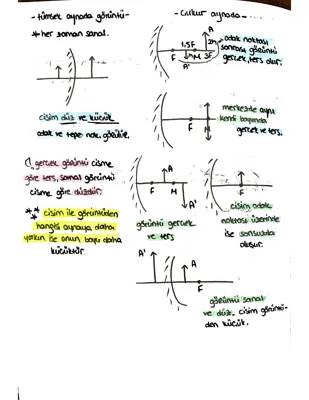 -tümsek aynada görüntü-
* her zaman sanal.
F
cisim düz ve küçük
odak ve tepe nok. görülür.
( gerçek görüntü cisme
göre ters, sanal görüntü
cisme göre düzdür.
** cisim ile görüntüden
hangisi aynaya daha
yakın ise onun boyu daha
küçüktür.
-çukur aynada-
A
odak noktası
sonrası görüntü
gerçek, ters olur.
1.5F
2h
F
M
3F
A'
merkezde aynı
kendi boyunda
gerçek ve ters.
F
M
A
F
M
A'
görüntü gerçek
ve ters
F
cisim odak
noktası üzerinde
ise sonsuzda
oluşur.
A'
A
F
görüntü sanal
ve düz. cisim görüntü-
den küçük.